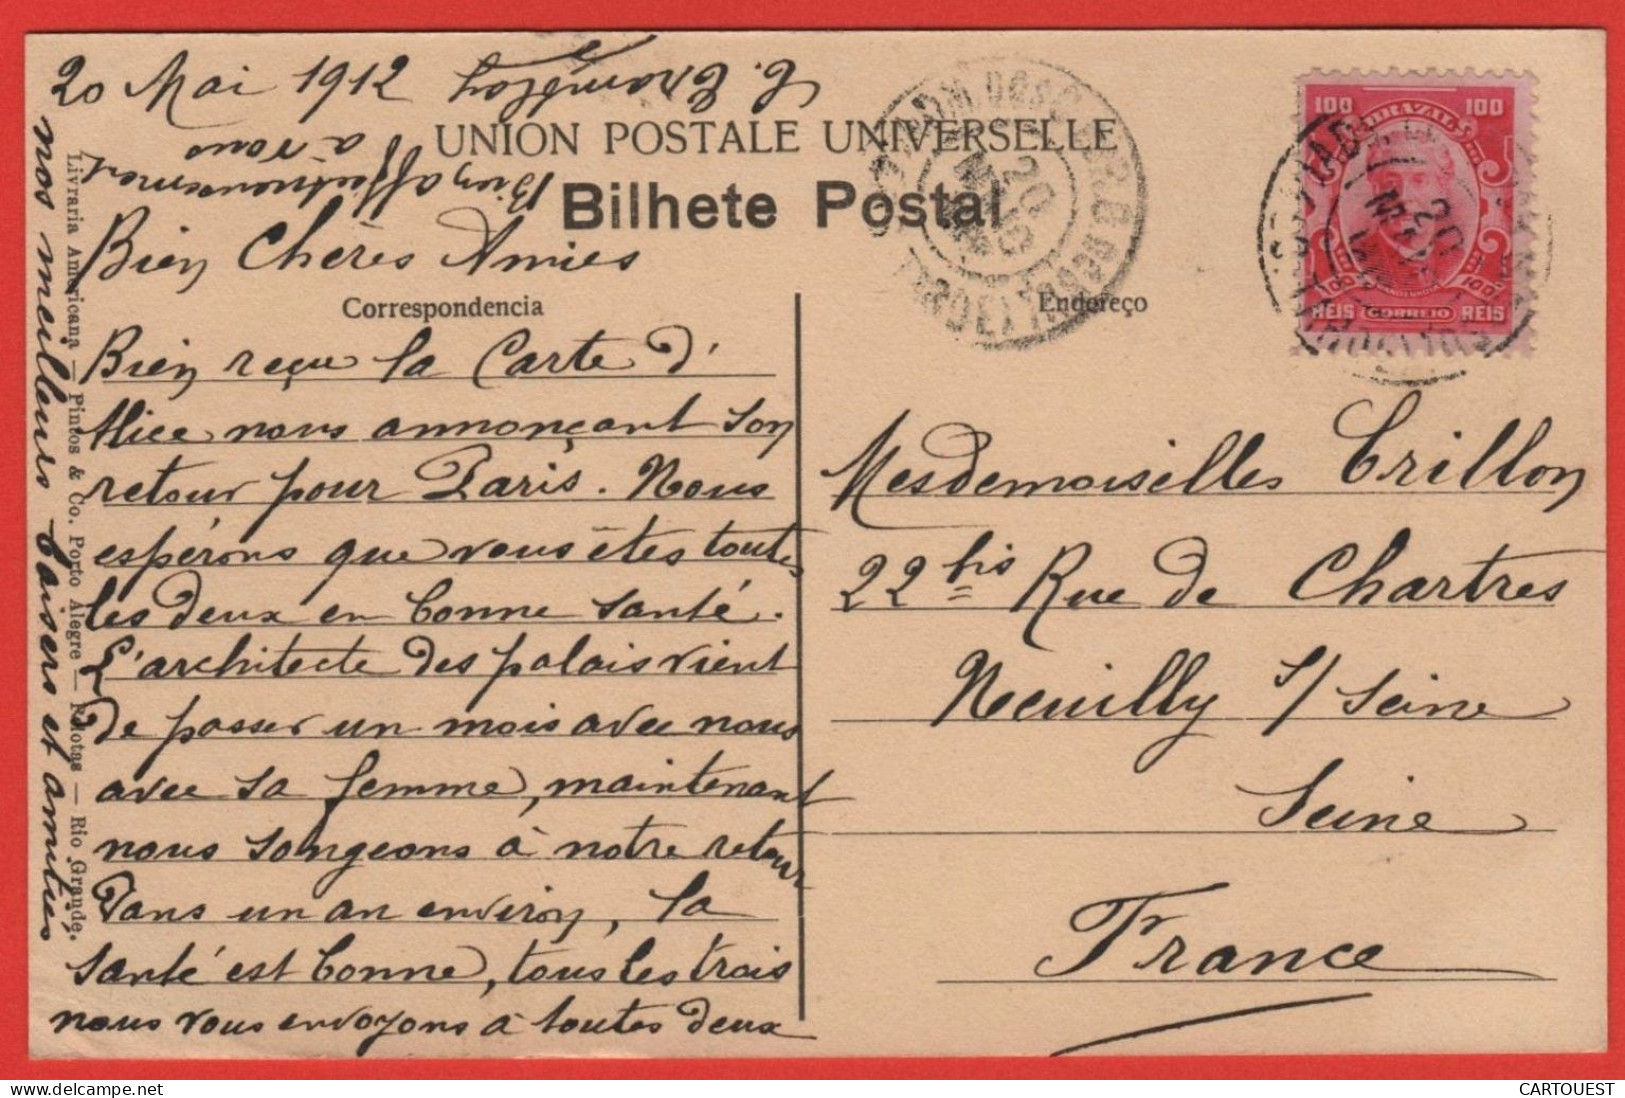 20 Mai 1912
UNION POSTALE UNIVERSELLE
Bilhete Postal
Correspondencia
Endereço
Bien Chères Amies
Bien reçu la Carte d'
Alice nous annonçant son
retour pour Paris. Nous
espérons que vous êtes toutes
les deux en bonne santé.
L'architecte des palais vient
de passer un mois avec nous
avec sa femme, maintenant
nous songeons à notre retour
dans un an environ, la
santé est bonne, tous les trois
nous vous envoyons à toutes deux
nos meilleurs baisers et amitiés
Bien affectueusement
à vous
Livraria Americana — Pintos & Co. Porto Alegre — Pelotas — Rio Grande.
Mesdemoiselles Crillon
22 bis Rue de Chartres
Neuilly s/ Seine
Seine
France
100 100
BRAZIL
100 100
REIS CORREIO REIS
20
20
CARTOUEST